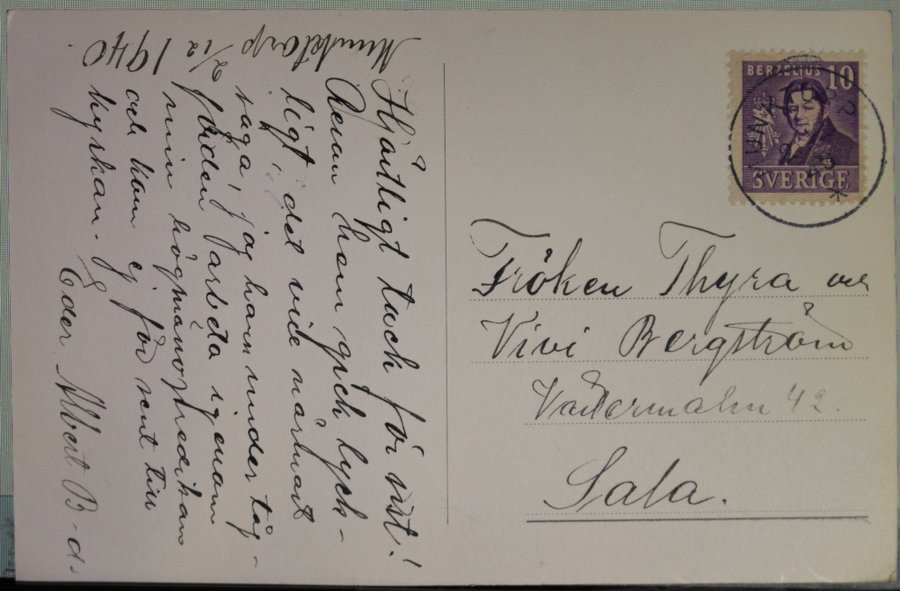 Munktorp 2/12 1940
Hjärtligt tack för sist!
Resan hem gick lyck-
ligt det vill närmast
säga, jag hann under tåg-
färden arbeta igenom
min högmässopredikan
och kom ej för sent till
kyrkan.
Eder Albert B-d.
BERZELIUS 10
SVERIGE
Fröken Thyra och
Vivi Bergström
Sala.